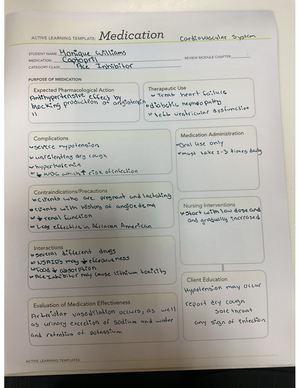 ACTIVE LEARNING TEMPLATE: Medication
Cardiovascular System
STUDENT NAME Monique Williams
MEDICATION Captopril
REVIEW MODULE CHAPTER
CATEGORY CLASS Ace Inhibitor
PURPOSE OF MEDICATION
Expected Pharmacological Action
Antihypertensive effect by
blocking production of angiotensin
II
Therapeutic Use
Treat heart failure
diabetic nephropathy
left ventricular dysfunction
Complications
severe hypotension
unrelenting dry cough
hyperkalemia
risk of infection
Medication Administration
Oral use only
must take 2-3 times daily
Contraindications/Precautions
clients who are pregnant and lactating
clients with history of angioedema
↓ renal function
Less effective in African American
Nursing Interventions
Start with low dose and
and gradually increased
Interactions
several different drugs
NSAIDs may ↓ effectiveness
Food ↓ absorption
Ace inhibitor may cause lithium toxicity
Client Education
Hypotension may occur
report dry cough
sore throat
any sign of infection
Evaluation of Medication Effectiveness
Arteriolar vasodilation occurs, as well
as urinary excretion of sodium and water
and retention of potassium
ACTIVE LEARNING TEMPLATES